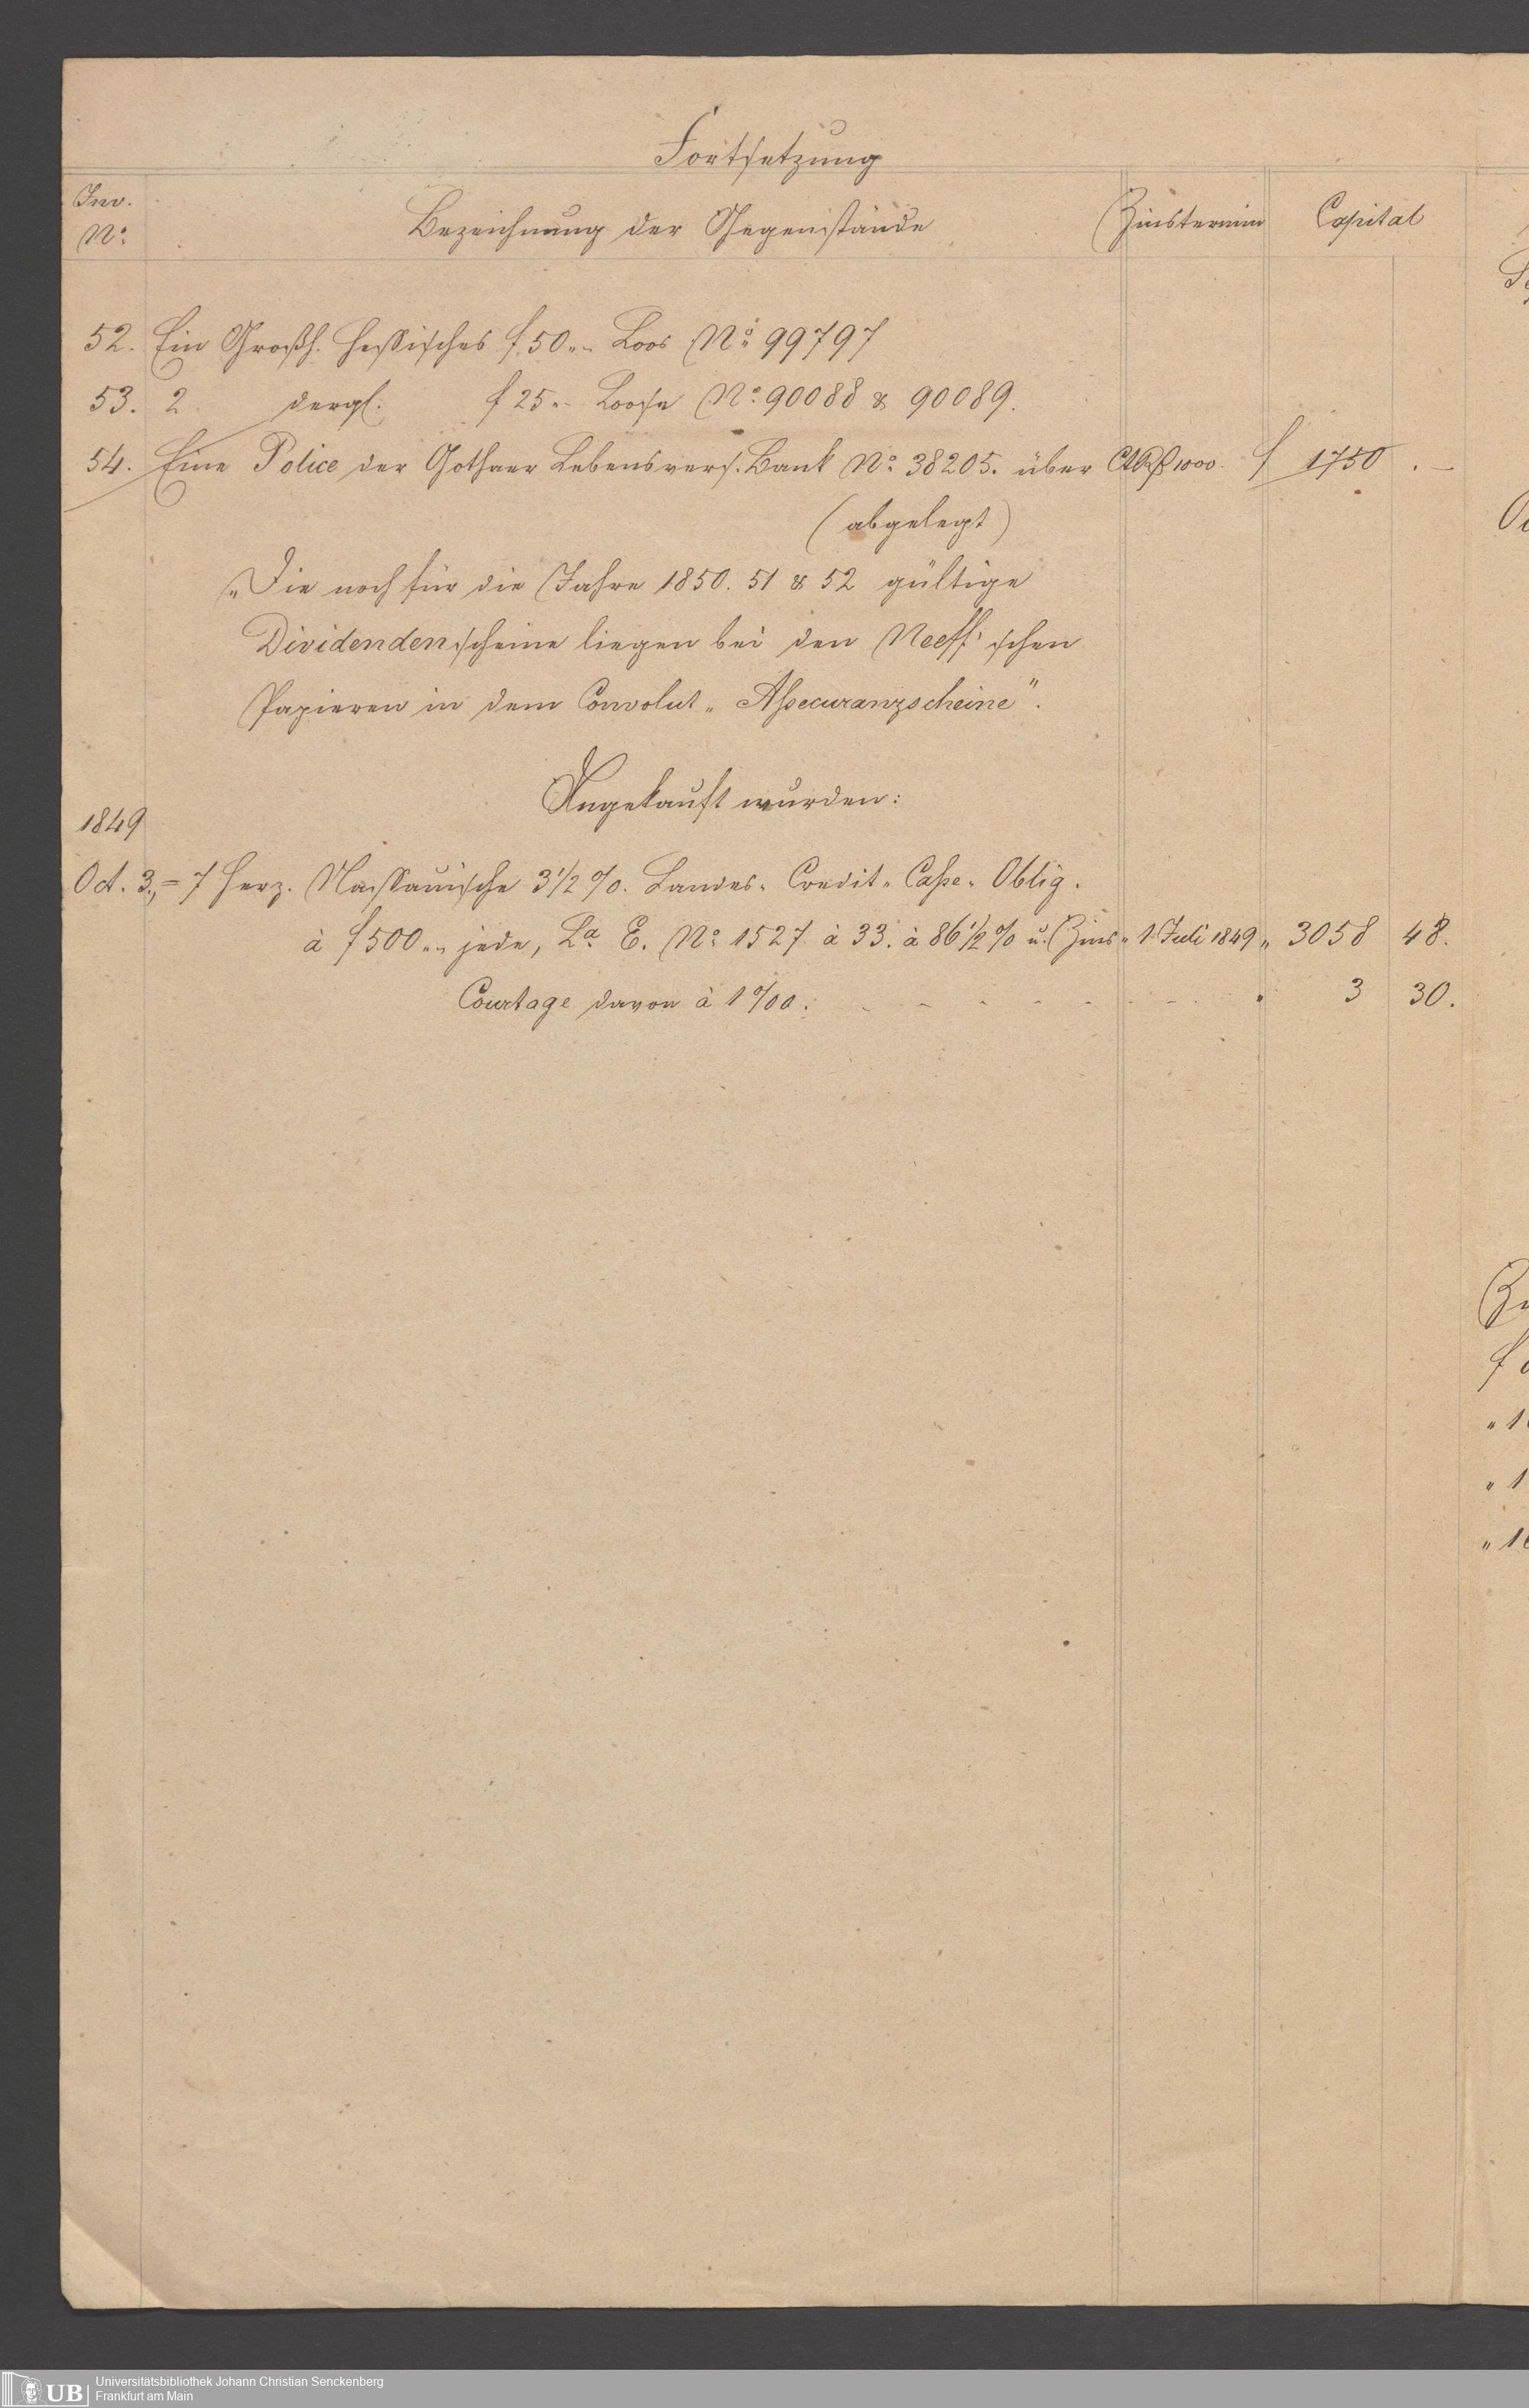 Fortsetzung
Inv.
No.
Bezeichnung der Gegenstände
Zinstermin
Capital
52. Ein Großh. Hessisches f 50.- Loos No. 99797
53. 2 dergl. f 25.- Loose No. 90088 & 90089.
54. Eine Police der Gothaer Lebensvers. Bank No. 38205. über 1000. f 1750 . -
(abgelegt)
"Die noch für die Jahre 1850. 51 & 52 gültige
Dividendenscheine liegen bei den Neeff'schen
Papieren in dem Convolut "Assecuranzscheine".
Angekauft wurden:
1849
Oct. 3. = 7 Herz. Nassauische 3 1/2 %. Landes-Credit-Casse-Oblig.
à f 500.- jede, La. E. No. 1527 à 33. à 86 1/2 % u. Zins " 1 Juli 1849 " 3058 48.
Courtage davon à 1 ‰. - - - - - - - " 3 30.
UB
Universitätsbibliothek Johann Christian Senckenberg
Frankfurt am Main